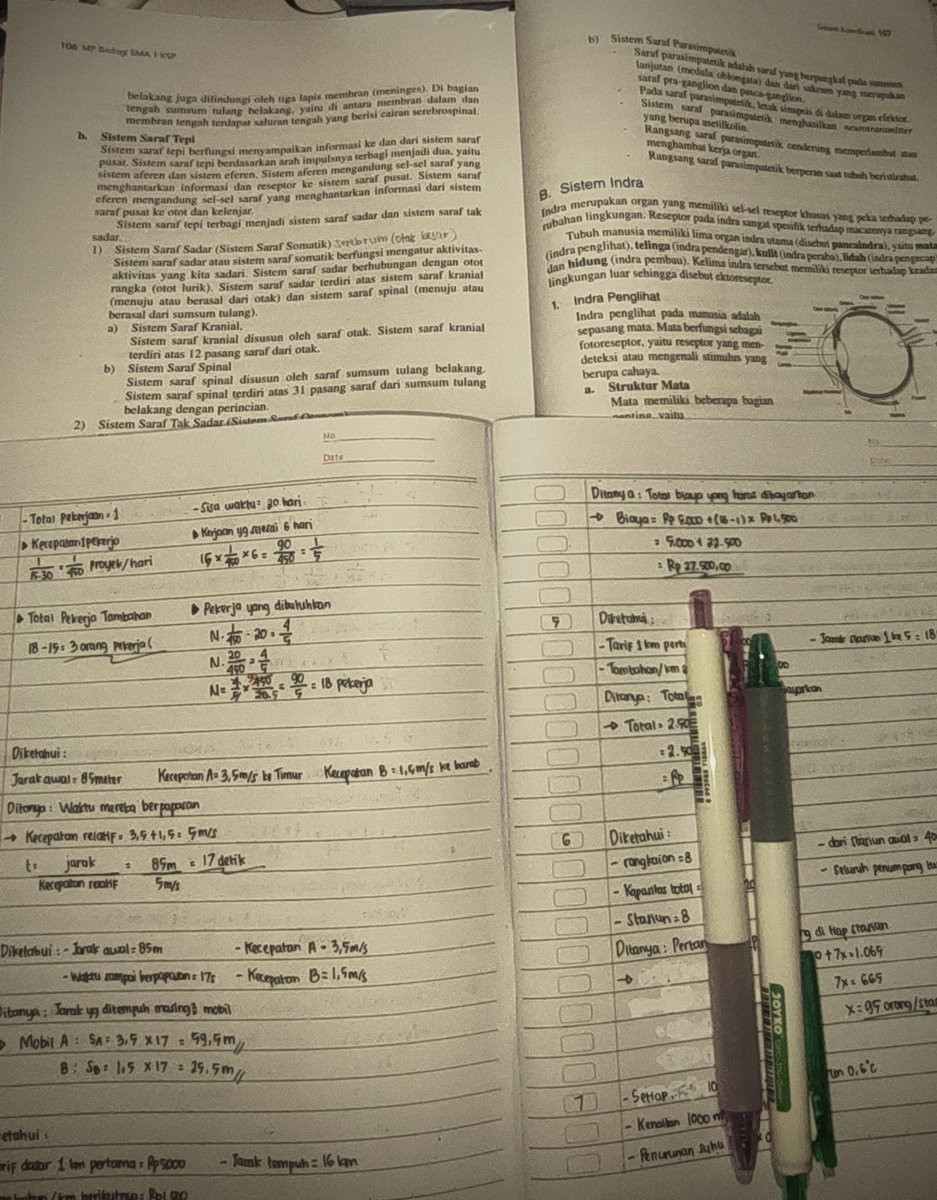 106 MP Biologi SMA 1 KSP
belakang juga dilindungi oleh tiga lapis membran (meninges). Di bagian
tengah sumsum tulang belakang, yaitu di antara membran dalam dan
membran tengah terdapat saluran tengah yang berisi cairan serebrospinal.
b. Sistem Saraf Tepi
Sistem saraf tepi berfungsi menyampaikan informasi ke dan dari sistem saraf
pusat. Sistem saraf tepi berdasarkan arah impulsnya terbagi menjadi dua, yaitu
sistem aferen dan sistem eferen. Sistem aferen mengandung sel-sel saraf yang
menghantarkan informasi dari reseptor ke sistem saraf pusat. Sistem saraf
eferen mengandung sel-sel saraf yang menghantarkan informasi dari sistem
saraf pusat ke otot dan kelenjar.
Sistem saraf tepi terbagi menjadi sistem saraf sadar dan sistem saraf tak
sadar.
1) Sistem Saraf Sadar (Sistem Saraf Somatik) Serebrum (otak besar)
Sistem saraf sadar atau sistem saraf somatik berfungsi mengatur aktivitas-
aktivitas yang kita sadari. Sistem saraf sadar berhubungan dengan otot
rangka (otot lurik). Sistem saraf sadar terdiri atas sistem saraf kranial
(menuju atau berasal dari otak) dan sistem saraf spinal (menuju atau
berasal dari sumsum tulang).
a) Sistem Saraf Kranial,
Sistem saraf kranial disusun oleh saraf otak. Sistem saraf kranial
terdiri atas 12 pasang saraf dari otak.
b) Sistem Saraf Spinal
Sistem saraf spinal disusun oleh saraf sumsum tulang belakang.
Sistem saraf spinal terdiri atas 31 pasang saraf dari sumsum tulang
belakang dengan perincian.
2) Sistem Saraf Tak Sadar (Sistem Saraf Otonom)
107
b) Sistem Saraf Parasimpatetik
- Saraf parasimpatetik adalah saraf yang berpangkal pada sumsum
lanjutan (medula oblongata) dan dari sakrum yang merupakan
saraf pra-ganglion dan pasca-ganglion.
- Pada saraf parasimpatetik, letak sinapsis di dalam organ efektor.
- Sistem saraf parasimpatetik menghasilkan neurotransmiter
yang berupa asetilkolin.
- Rangsang saraf parasimpatetik cenderung memperlambat atau
menghambat kerja organ.
- Rangsang saraf parasimpatetik berperan saat tubuh beristirahat.
B. Sistem Indra
Indra merupakan organ yang memiliki sel-sel reseptor khusus yang peka terhadap pe-
rubahan lingkungan. Reseptor pada indra sangat spesifik terhadap macamnya rangsang.
Tubuh manusia memiliki lima organ indra utama (disebut pancaindra), yaitu mata
(indra penglihat), telinga (indra pendengar), kulit (indra peraba), lidah (indra pengecap)
dan hidung (indra pembau). Kelima indra tersebut memiliki reseptor terhadap keadaa
lingkungan luar sehingga disebut ektoreseptor.
1. Indra Penglihat
Indra penglihat pada manusia adalah
sepasang mata. Mata berfungsi sebagai
fotoreseptor, yaitu reseptor yang men-
deteksi atau mengenali stimulus yang
berupa cahaya.
a. Struktur Mata
Mata memiliki beberapa bagian
penting, yaitu
No
Date
- Total Pekerjaan = 1 - Sisa waktu = 20 hari
▸ Kecepatan 1 pekerja ▸ Kerjaan yg selesai 6 hari
1/15.30 = 1/450 proyek/hari 15 x 1/450 x 6 = 90/450 = 1/5
▸ Total Pekerja Tambahan ▸ Pekerja yang dibutuhkan
18 - 15 = 3 orang pekerja N. 1/450 . 20 = 4/5
N. 20/450 = 4/5
N = 4/5 x 450/20 = 90/5 = 18 pekerja
Diketahui :
Jarak awal = 85 meter Kecepatan A = 3,5 m/s ke Timur Kecepatan B = 1,5 m/s ke barat
Ditanya : Waktu mereka berpapasan
→ Kecepatan relatif = 3,5 + 1,5 = 5 m/s
t = jarak / Kecepatan relatif = 85m / 5m/s = 17 detik
Diketahui : - Jarak awal = 85m - Kecepatan A = 3,5m/s
- Waktu sampai berpapasan = 17s - Kecepatan B = 1,5m/s
Ditanya : Jarak yg ditempuh masing² mobil
Mobil A : SA = 3,5 x 17 = 59,5 m
B : SB = 1,5 x 17 = 25,5 m
etahui :
rif dasar 1 km pertama = Rp5000 - Jarak tempuh = 16 km
/km berikutnya = Rp1.500
No
Date
Ditanya : Total biaya yang harus dibayarkan
→ Biaya = Rp 5.000 + (16 - 1) x Rp 1.500
= 5.000 + 22.500
= Rp 27.500,00
5 Diketahui :
- Tarif 1 km pert - Jarak stasiun 1 ke 5 = 18
- Tambahan/km
Ditanya : Total bayarkan
→ Total = 2.50
= 2.50
= Rp
6 Diketahui :
- rangkaian = 8 - dari stasiun awal = 40
- Kapasitas total = - Seluruh penumpang tu
- Stasiun = 8
Ditanya : Pertan g di tiap stasiun
→ 0 + 7x = 1.065
7x = 665
x = 95 orang/stas
7 - Setiap 10 un 0,6°C
- Kenaikan 1000 m
- Penurunan suhu
JOYKO